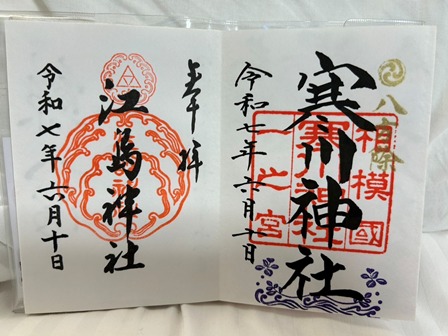 奉拝
江島神社
令和七年六月十日
八方除
相模國
寒川神社
一之宮
令和七年六月十日